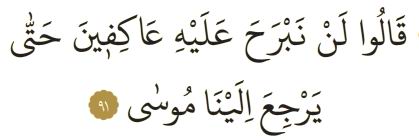 قَالُوا لَنْ نَبْرَحَ عَلَيْهِ عَاكِفٖينَ حَتّٰى
يَرْجِعَ اِلَيْنَا مُوسٰى ﴿٩١﴾